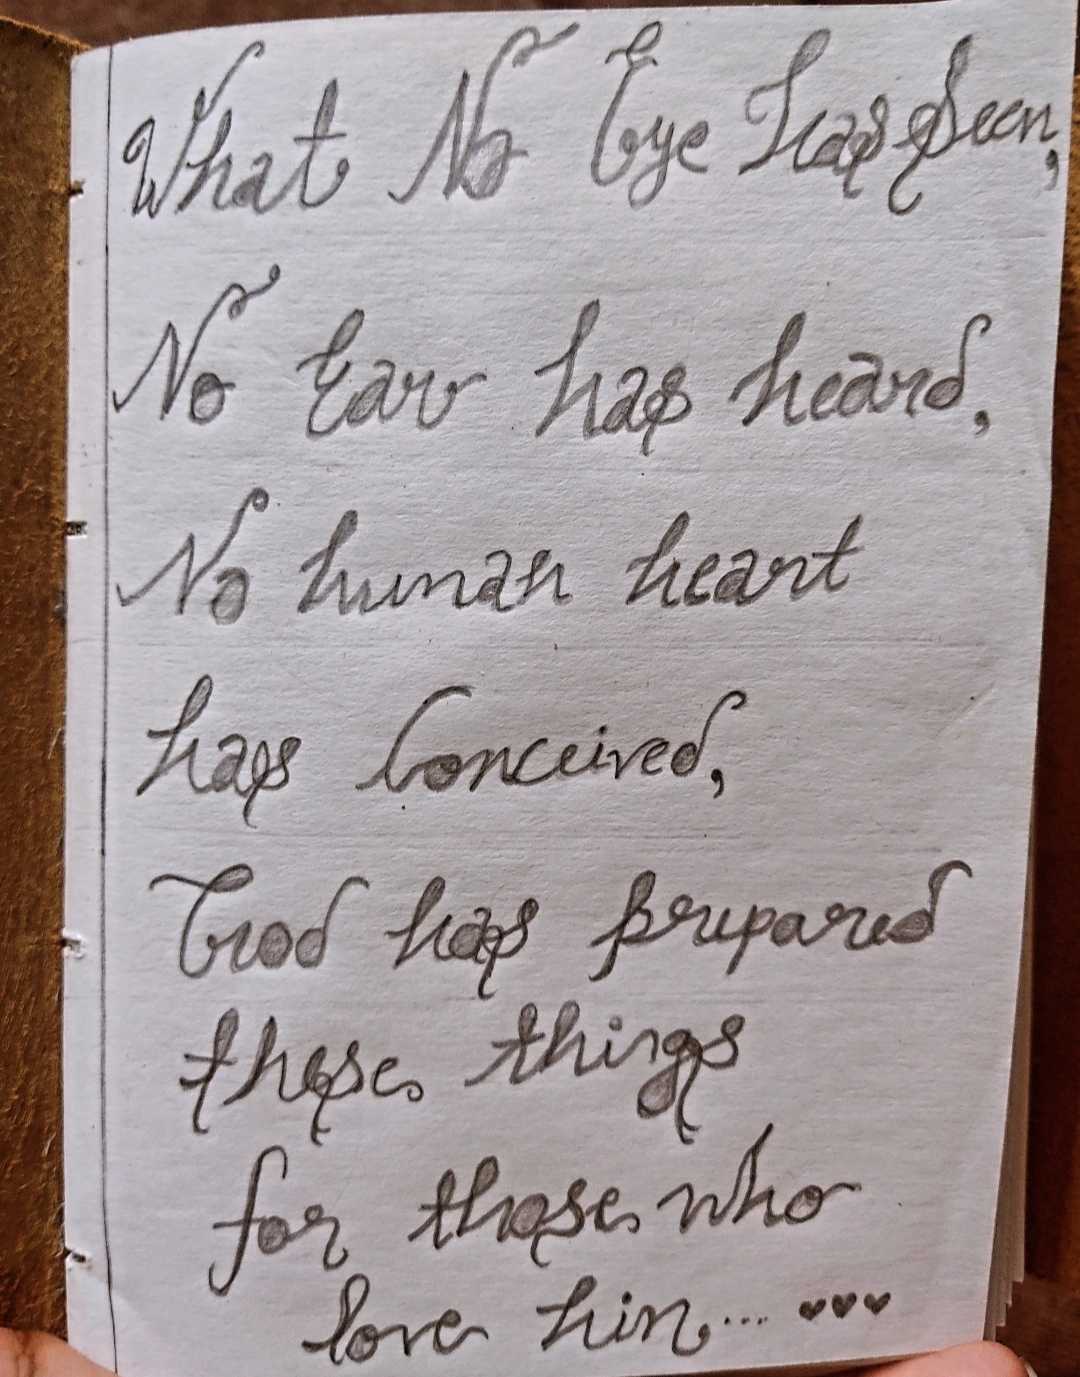 What No Eye has Seen,
No Ear has heard,
No human heart
has Conceived,
God has prepared
these things
for those who
love him.... ♥♥♥